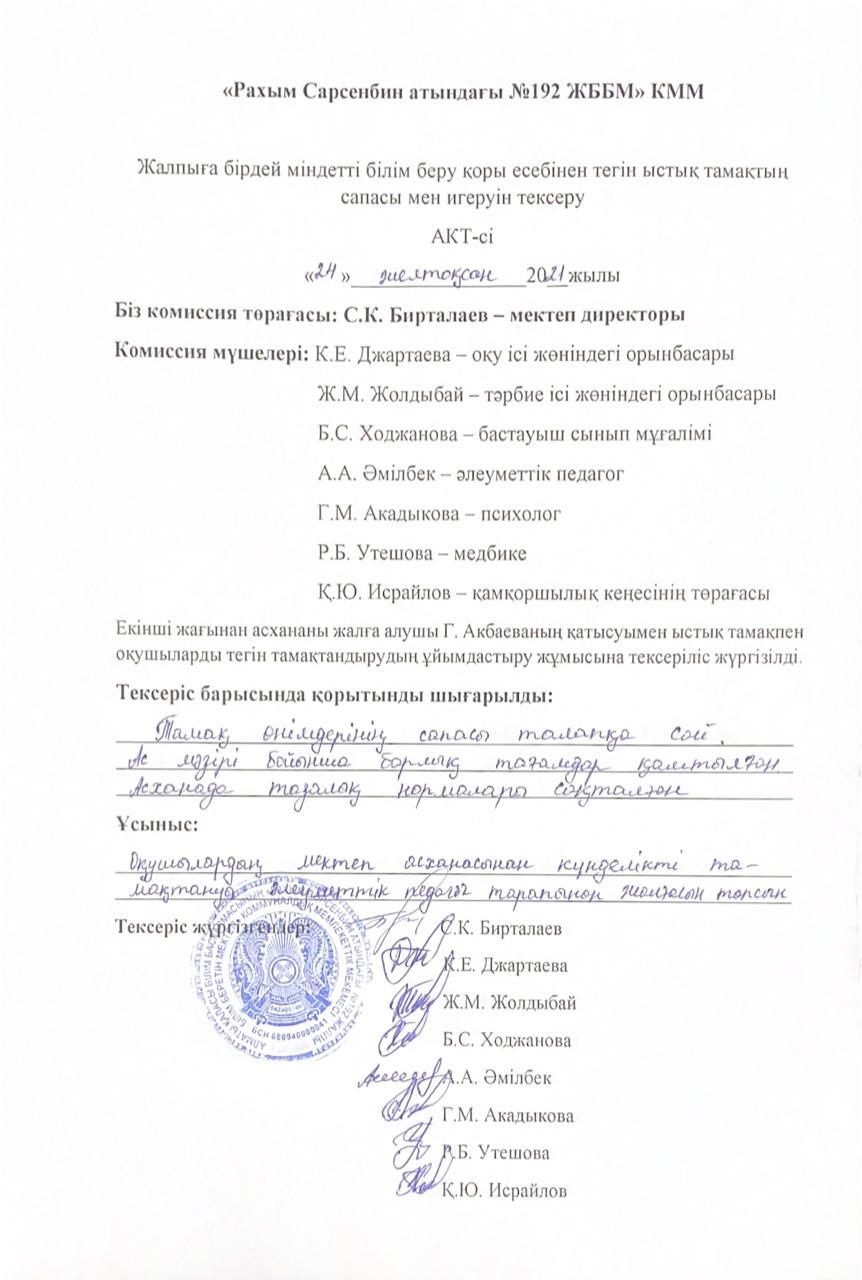 «Рахым Сарсенбин атындағы №192 ЖББМ» КММ
Жалпыға бірдей міндетті білім беру қоры есебінен тегін ыстық тамақтың
сапасы мен игеруін тексеру
АКТ-сі
«24» желтоқсан 2021 жылы
Біз комиссия төрағасы: С.К. Бирталаев – мектеп директоры
Комиссия мүшелері: К.Е. Джартаева – оқу ісі жөніндегі орынбасары
Ж.М. Жолдыбай – тәрбие ісі жөніндегі орынбасары
Б.С. Ходжанова – бастауыш сынып мұғалімі
А.А. Әмілбек – әлеуметтік педагог
Г.М. Акадыкова – психолог
Р.Б. Утешова – медбике
Қ.Ю. Исрайлов – қамқоршылық кеңесінің төрағасы
Екінші жағынан асхананы жалға алушы Г. Акбаеваның қатысуымен ыстық тамақпен
оқушыларды тегін тамақтандырудың ұйымдастыру жұмысына тексеріліс жүргізілді.
Тексеріс барысында қорытынды шығарылды:
Тамақ өнімдерінің сапасы талапқа сай.
Ас мәзірі бойынша барлық тағамдар қамтылған
Асханада тазалық нормалары сақталған
Ұсыныс:
Оқушылардың мектеп асханасынан күнделікті та-
мақтануы әлеуметтік педагог тарапынан жалғасын тапсын
Тексеріс жүргізгендер: С.К. Бирталаев
К.Е. Джартаева
Ж.М. Жолдыбай
Б.С. Ходжанова
А.А. Әмілбек
Г.М. Акадыкова
Р.Б. Утешова
Қ.Ю. Исрайлов
БСН 680940000041